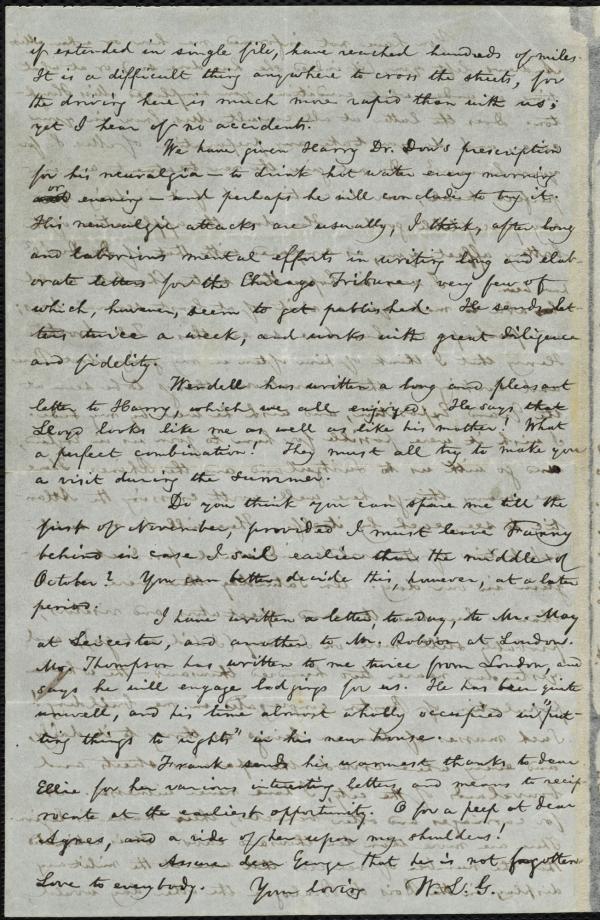 if extended in single file, have reached hundreds of miles.
It is a difficult thing anywhere to cross the streets, for
the driving here is much more rapid than with us;
yet I hear of no accidents.
We have given Harry Dr. Dow's prescription
for his neuralgia — to drink hot water every morning
or evening — and perhaps he will conclude to try it.
His neuralgic attacks are usually, I think, after long
and laborious mental efforts in writing long and elab-
orate letters for the Chicago Tribune, very few of
which, however, seem to get published. He sends let-
ters twice a week, and works with great diligence
and fidelity.
Wendell has written a long and pleasant
letter to Harry, which we all enjoyed. He says that
Lloyd looks like me as well as like his mother! What
a perfect combination! They must all try to make you
a visit during the summer.
Do you think you can spare me till the
first of November, provided I must leave Franky
behind in case I sail earlier than the middle of
October? You can better decide this, however, at a later
period.
I have written a letter, to-day, to Mr. May
at Leicester, and another to Mr. Robson at London.
Mr. Thompson has written to me twice from London, and
says he will engage lodgings for us. He has been quite
unwell, and his time almost wholly occupied in "put-
ting things to rights" in his new house.
Frank sends his warmest thanks to dear
Ellie for her various interesting letters, and means to recip-
rocate at the earliest opportunity. O for a peep at dear
Agnes, and a ride of her upon my shoulders!
Assure dear George that he is not forgotten.
Love to everybody. Your loving W. L. G.